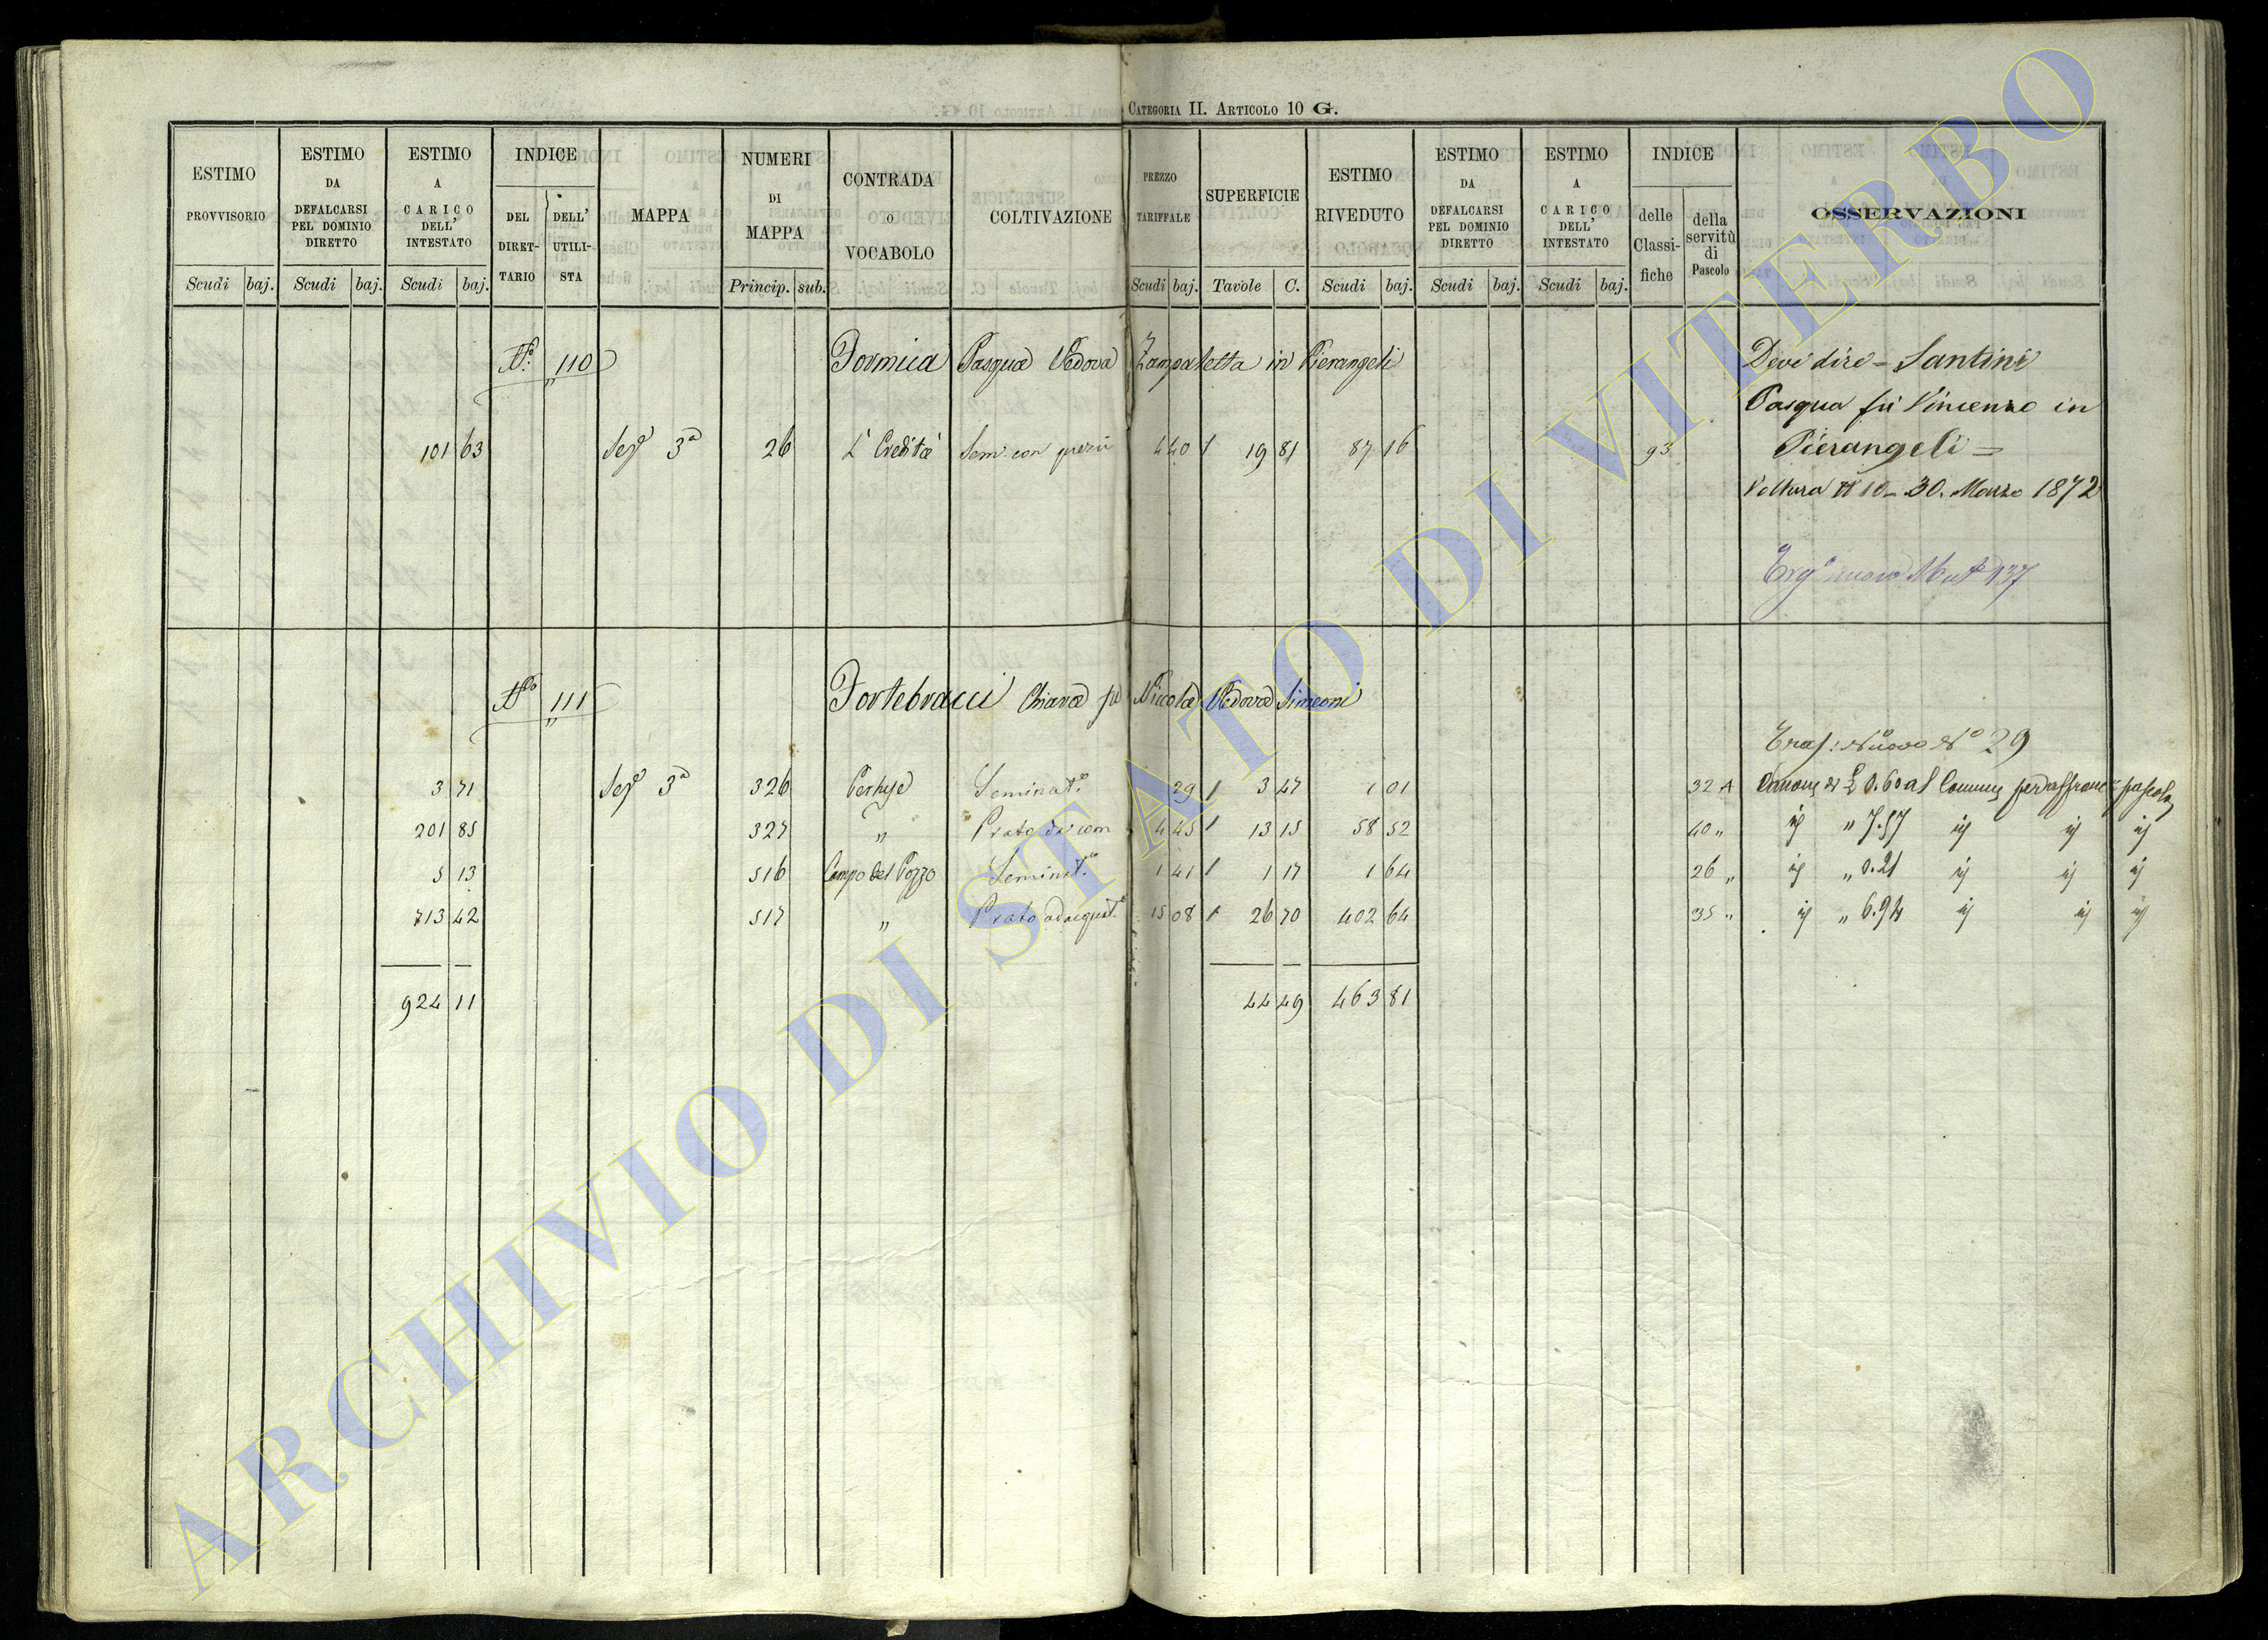 CATEGORIA II. ARTICOLO 10 G.
ESTIMO PROVVISORIO Scudi baj.
ESTIMO DA DEFALCARSI PEL DOMINIO DIRETTO Scudi baj.
ESTIMO A CARICO DELL' INTESTATO Scudi baj.
INDICE DEL DIRET-TARIO DELL' UTILI-STA
MAPPA
NUMERI DI MAPPA Princip. sub.
CONTRADA O VOCABOLO
COLTIVAZIONE
PREZZO TARIFFALE Scudi baj.
SUPERFICIE Tavole C.
ESTIMO RIVEDUTO Scudi baj.
ESTIMO DA DEFALCARSI PEL DOMINIO DIRETTO Scudi baj.
ESTIMO A CARICO DELL' INTESTATO Scudi baj.
INDICE delle Classi-fiche della servitù di Pascolo
OSSERVAZIONI
N.° 110 Formica Pasqua Vedova Zampaletta in Pierangeli
Deve dire = Santini
Pasqua fù Vincenzo in
Pierangeli =
101 63 Sez 3a 26 L' Eredità Sem: con 4 40 1 19 81 87 16 93
Voltura N 10 = 30. Marzo 1872
nuovo 137
N° 111 Fortebracci Chiara fu Nicola Vedova Simeoni
Trasp: Nuovo N° 29
3 71 Sez 3a 326 Seminat.° 29 1 3 47 1 01 32 A Canone di £ 0.60 al Comune per pascolo
201 85 327 " Prato 4 45 1 13 15 58 52 40 " id " 7.57 id id id
5 13 516 Campo del Pozzo Seminat.° 1 41 1 1 17 1 64 26 " id " 0.21 id id id
713 42 517 " Prato adacquat.° 15 08 1 26 70 402 64 35 " id " 6.94 id id id
924 11 44 49 463 81
ARCHIVIO DI STATO DI VITERBO